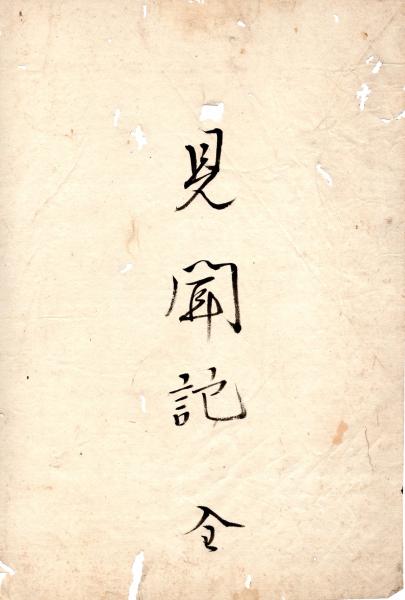 見聞記全